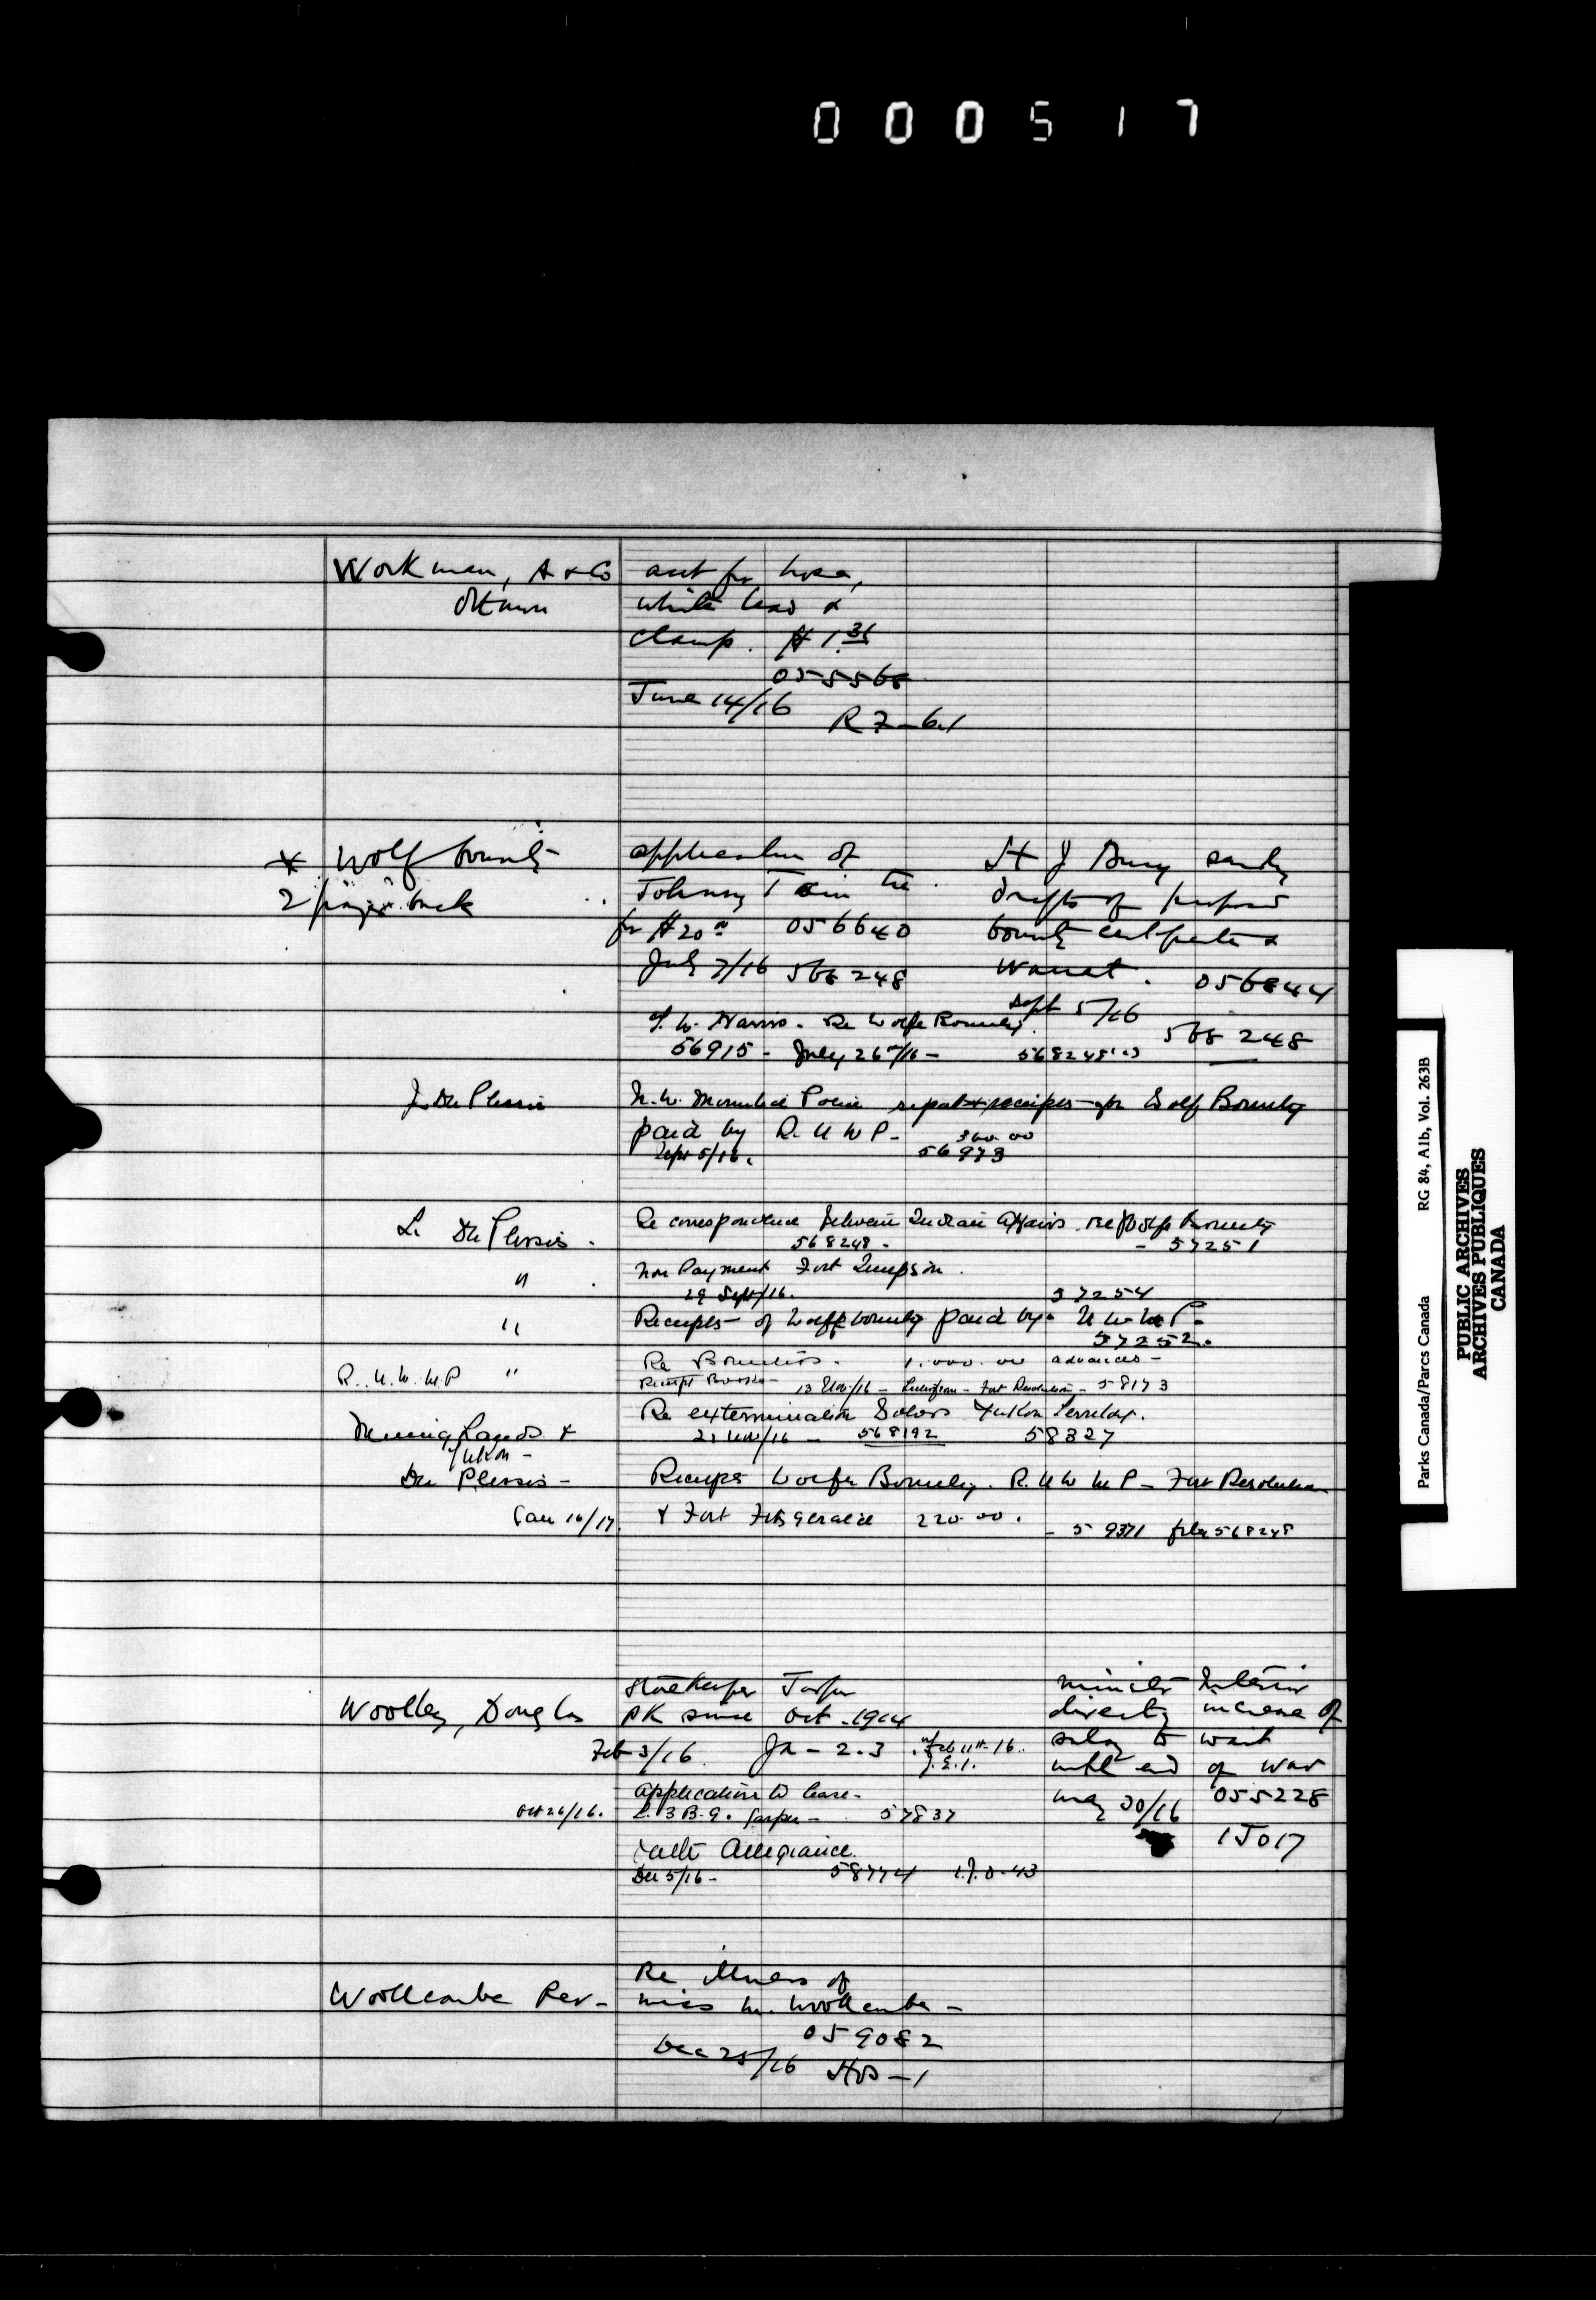 000517
Workman, A & Co
Ottawa
acct for hose,
white lead &
clamp. $1.35
055568
June 14/16
R7-61
* Wolf bounty
2 pages back
application of
Johnny
for $20.00 056640
July 7/16 568248
St J sending
drafts of proposed
bounty certificate &
Warrant. 056844
Sept 5/16
568248
Harris - Re Wolfe Bounty
56915 - July 26th/16 - 568248
J. Du Plessis
N.W. Mounted Police report & receipts for Wolf Bounty
paid by R.N.W.P -
360.00
Sept 5/16. 56973
L. Du Plessis.
Re correspondence between Indian Affairs re Wolfe Bounty
568248 - 57251
" Non Payment Fort Simpson.
29 Sept/16. 57254
" Receipts of Wolff bounty paid by
57252.
R.N.W.M.P "
Re Bounties. 1.000.00 advances -
Receipt Books - 13 Nov/16 - Simpson - Fort Resolution - 58173
Mining Lands &
Yukon -
Re extermination Yukon Territory.
21 Nov/16 - 568192 58327
Du Plessis -
Receipts Wolfe Bounty. R.N.W.M.P - Fort Resolution
Jan 16/17.
& Fort Fitzgerald 220.00.
- 59371 file 568248
Woolley, Douglas
Storekeeper Jasper
PK since Oct. 1914
Feb 3/16 Ja-2.3 Feb 11th-16.
J.E.1.
Application to lease -
Oct 26/16. L.3 B.9. Jasper - 57837
Oath Allegiance.
Dec 5/16 - 58774
Minister Interior
directing increase of
salary to wait
until end of war
May 30/16 055228
15017
Woollcombe Rev -
Re illness of
Miss M. Woollcombe -
059082
Dec 25/16 HB-1
Parks Canada/Parcs Canada RG 84, A1b, Vol. 263B
PUBLIC ARCHIVES
ARCHIVES PUBLIQUES
CANADA